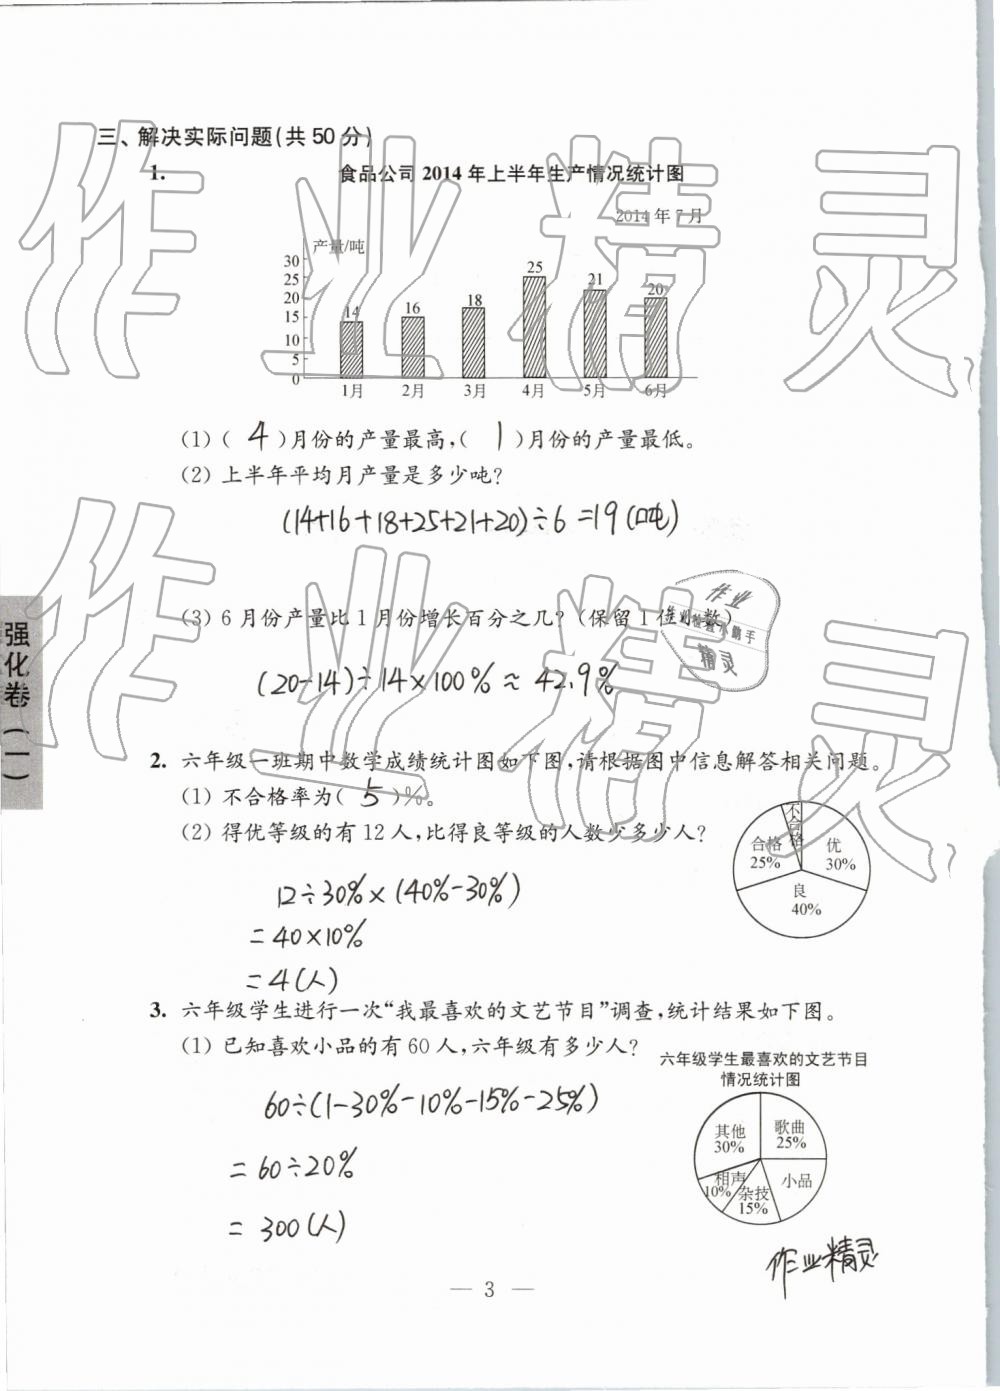 三、解决实际问题(共50分)
1. 食品公司2014年上半年生产情况统计图
2014年7月
产量/吨
30
25
20
15
10
5
0
14 16 18 25 21 20
1月 2月 3月 4月 5月 6月
(1) ( 4 )月份的产量最高,( 1 )月份的产量最低。
(2) 上半年平均月产量是多少吨?
(14+16+18+25+21+20)÷6=19(吨)
(3) 6月份产量比1月份增长百分之几?(保留1位小数)
(20-14)÷14×100%≈42.9%
强化卷(一)
2. 六年级一班期中数学成绩统计图如下图,请根据图中信息解答相关问题。
(1) 不合格率为( 5 )%。
(2) 得优等级的有12人,比得良等级的人数少多少人?
不合格
合格 25%
优 30%
良 40%
12÷30%×(40%-30%)
=40×10%
=4(人)
3. 六年级学生进行一次“我最喜欢的文艺节目”调查,统计结果如下图。
(1) 已知喜欢小品的有60人,六年级有多少人?
六年级学生最喜欢的文艺节目
情况统计图
其他 30%
歌曲 25%
相声 10%
杂技 15%
小品
60÷(1-30%-10%-15%-25%)
=60÷20%
=300(人)
作业精灵
— 3 —
作业精灵
作业精灵
作业
精灵